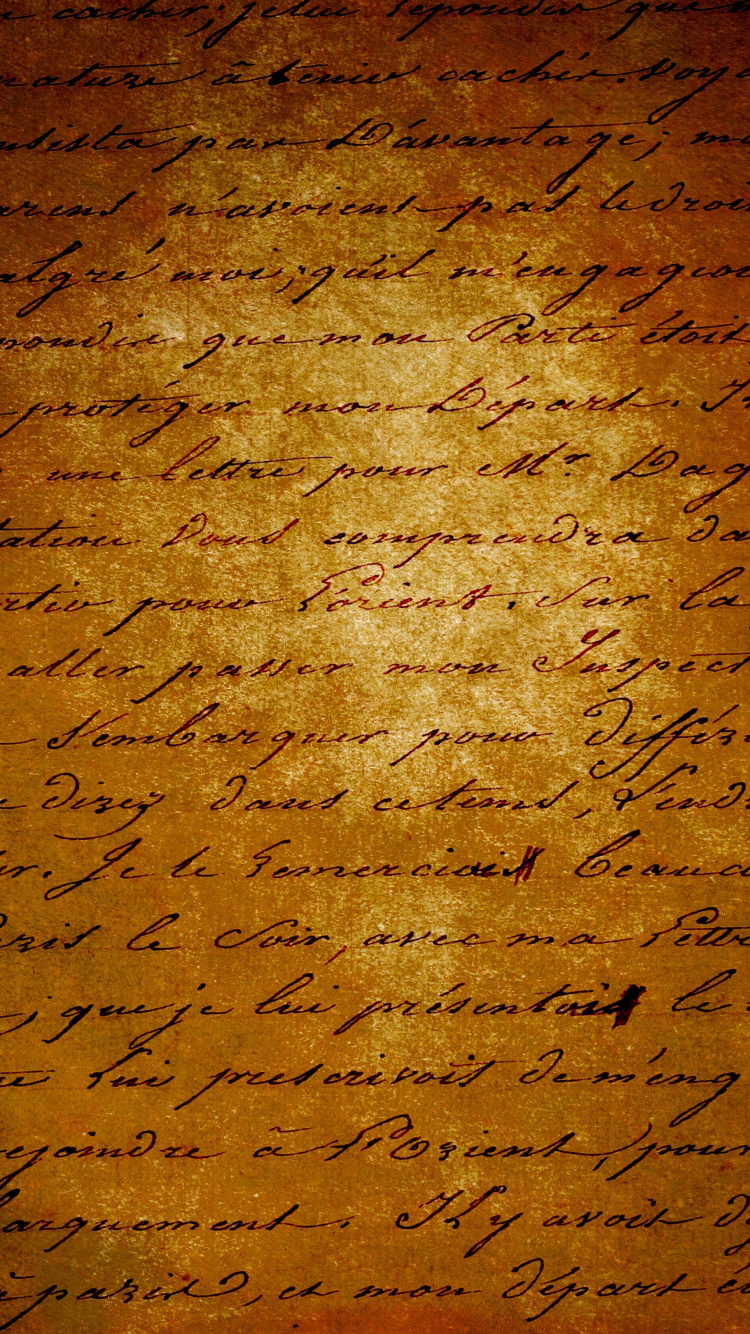 cacher; je lui repondis que
nature à tenir cachér. Voya
nsista par Davantage; m
arens n'avoient pas le droi
algré moi; qu'il m'engageoi
pondis que mon Parti étoit
protéger mon Départ. Il
une lettre pour Mr. Dag
tation vous comprendra da
rtir pour l'orient. Sur la
aller passer mon Inspect
S'embarquer pour différ
dans cetems, Vend
er. Je le remerciois beauco
aris le Soir, avec ma Lettre
; que je lui présentois le
lui prescrivoit de m'eng
ejoindre à l'Orient, pour
arquement. Il y avoit d
à paris, et mon départ